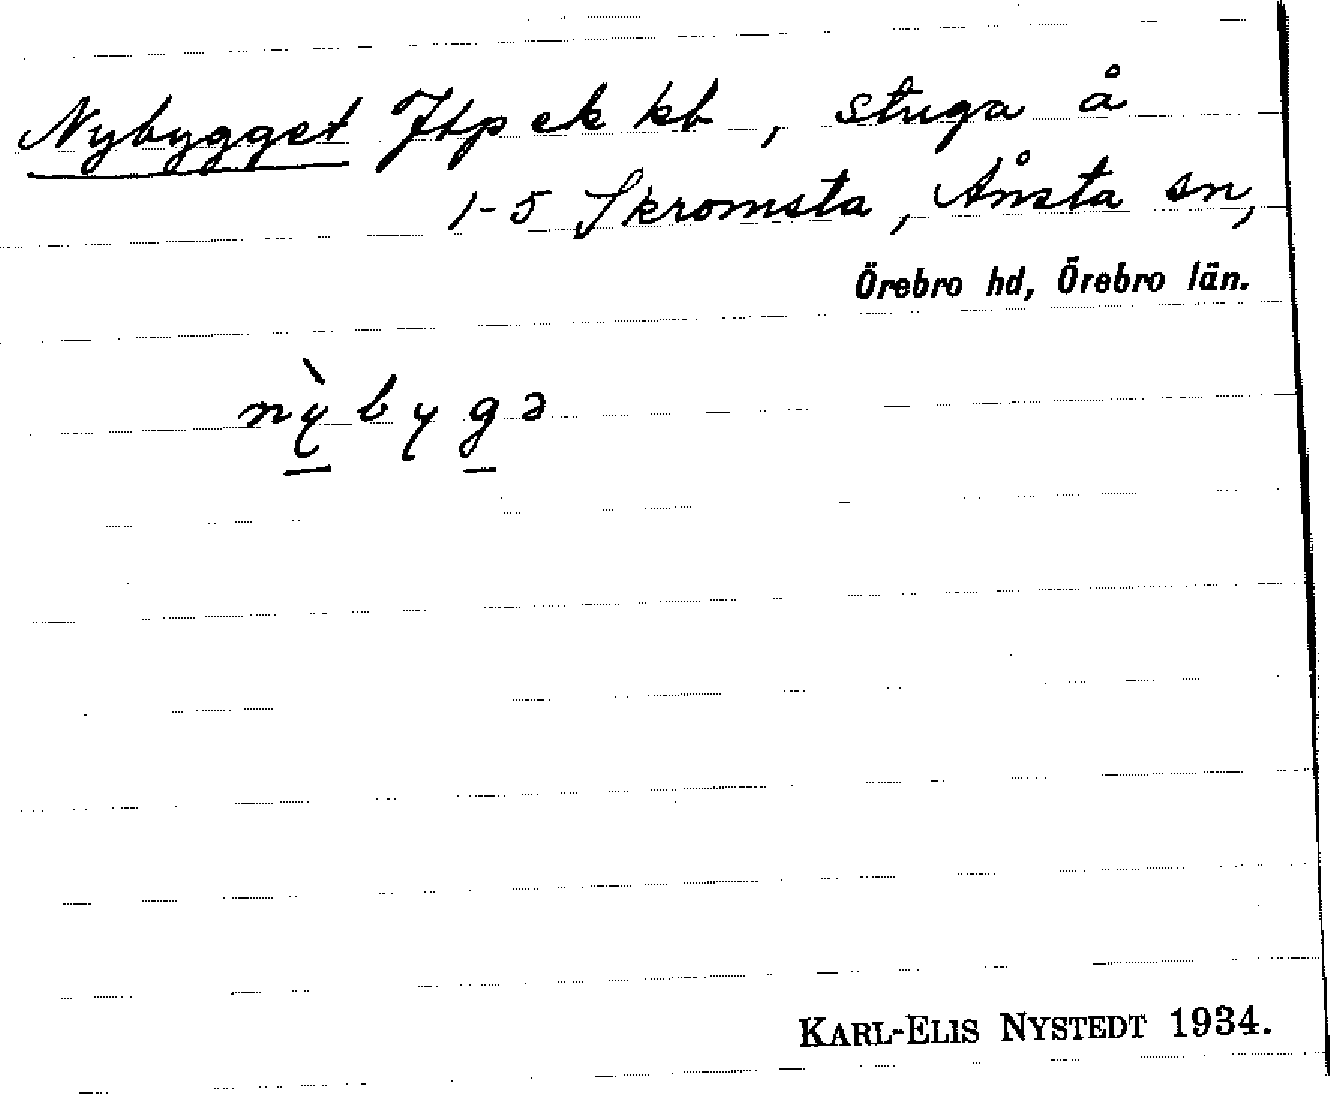 Nybygget Jtp ek kb, stuga å
1-5 Skromsta, Ånsta sn,
Örebro hd, Örebro län.
nỳbygə
KARL-ELIS NYSTEDT 1934.